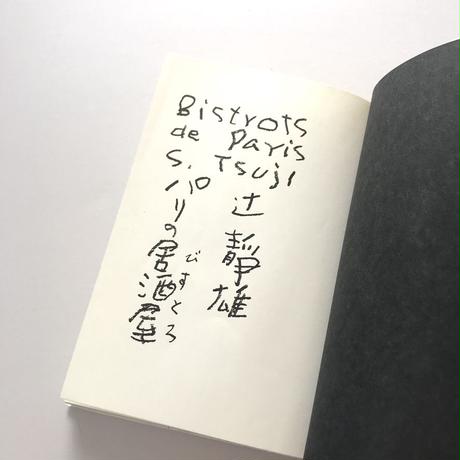 Bistrots
de Paris
S. Tsuji
辻静雄
パリの居酒屋
びすとろ